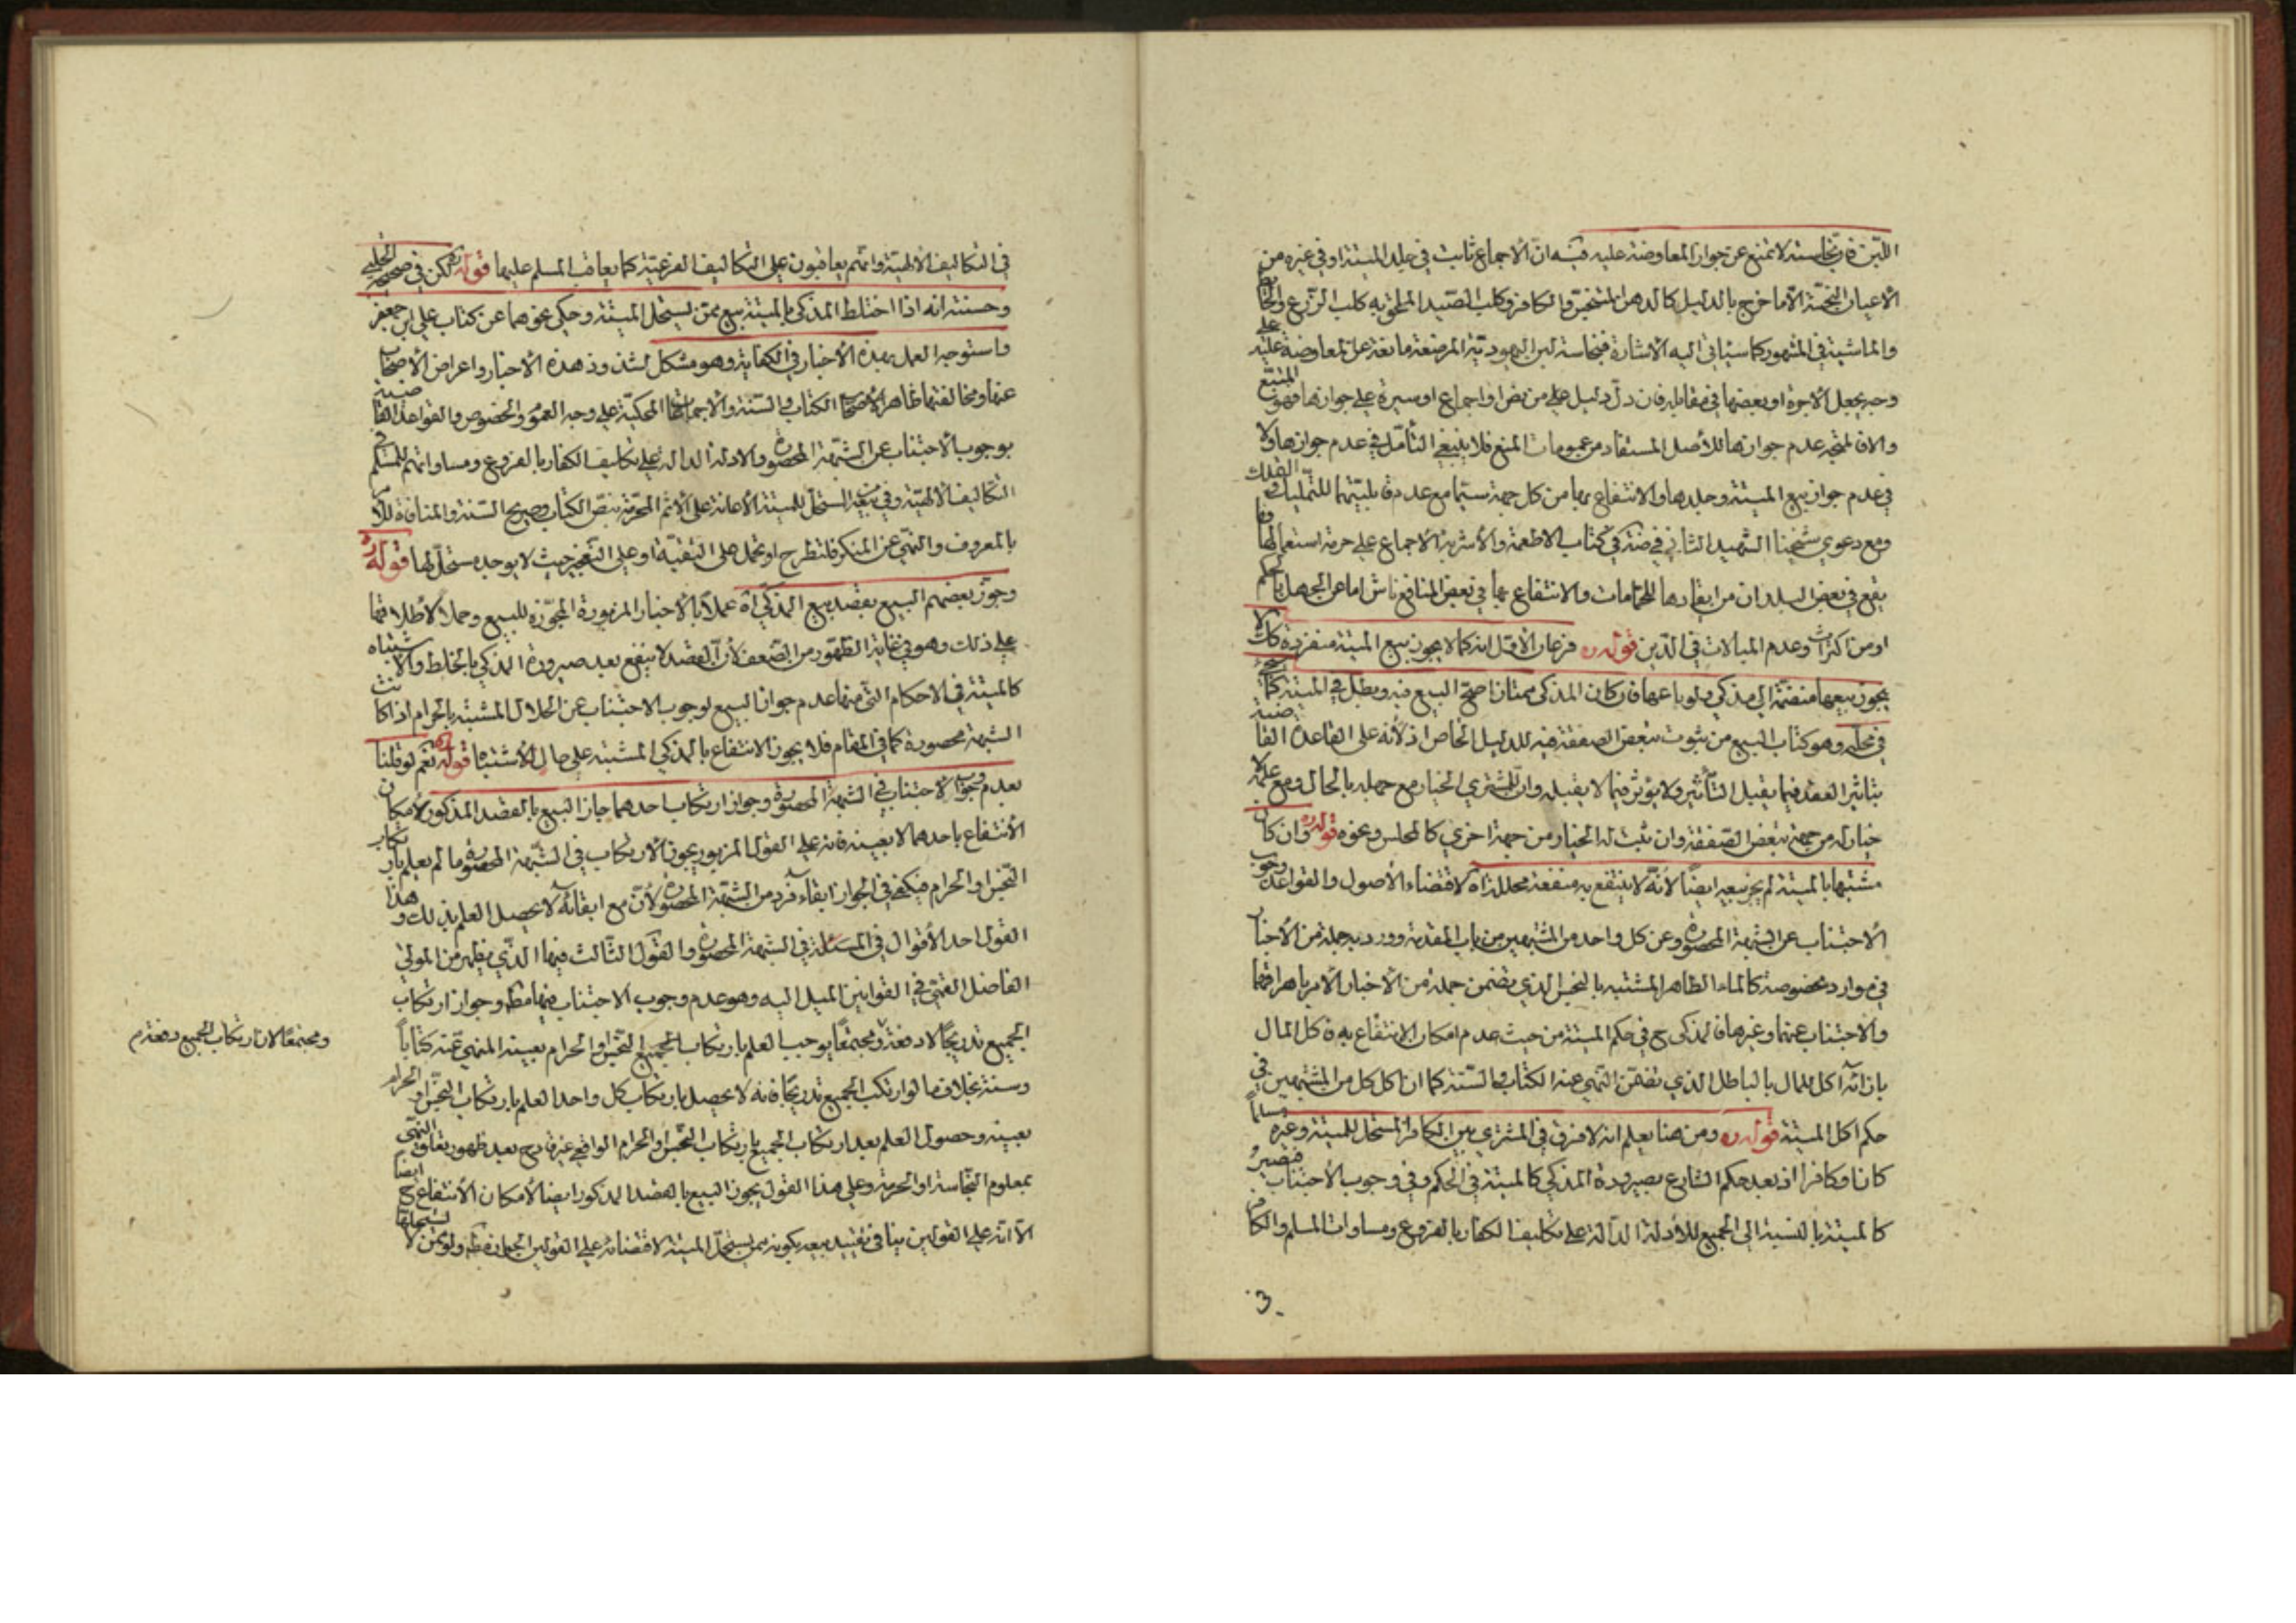 اللبن فان نجاسته لا تمنع عن جواز المعاوضة عليه فيه ان الاجماع ثابت في جلد الميتة او في غيره من
الأعيان النجسة الا ما خرج بالدليل كالدهن المتنجس والكافر وكلب الصيد الملحق به كلب الزرع والحائط
والماشية في المشهور كما سيأتي اليه الاشارة فنجاسة لبن اليهودية المرضعة مانعة عن المعاوضة عليه على
وجه يجعل الاجرة او بعضها في مقابله فان دل دليل على من نص او اجماع او سيرة على جوازها فهو المتبع
والا فالمتجه عدم جوازها للأصل المستفاد من عمومات المنع فلا ينبغي التأمل في عدم جوازها ولا
في عدم جواز بيع الميتة وجلدها والانتفاع بها من كل جهة سيما مع عدم قابليتها للتمليك والتملك
ومع دعوى شيخنا الشهيد الثاني في ضته في كتاب الاطعمة والأشربة الاجماع على حرمة استعمالها فما
يقع في بعض البلدان من ايقادها للحمامات والانتفاع بها في بعض المنافع ناش اما عن الجهل بالحكم
او من اكراث وعدم المبالات في الدين قوله ره فرعان الأول انه كما لا يجوز بيع الميتة منفردة كك لا
يجوز بيعها منضمة الى مذكى ولو باعها فان كان المذكى ممتازا صح البيع فيه وبطل في الميتة كما سيجئ
في محله وهو كتاب البيع من ثبوت تبعض الصفقة فيه للدليل الخاص اذ لأنه على القاعدة القاضية
بتأثير العقد فيما يقبل التأثير ولا يؤثر فيما لا يقبله وان للمشتري الخيار مع جهله بالحال ومع علمه لا
خيار له من جهة تبعض الصفقة وان ثبت له الخيار من جهة اخرى كالمجلس ونحوه قوله ره وان كان
مشتبها بالميتة لم يجز بيعه ايضا لأنه لا ينتفع به منفعة محللة اه لاقتضاء الأصول والقواعد وجوب
الاجتناب عن الشبهة المحصورة وعن كل واحد من المشتبهين من باب المقدمة وورد به جملة من الأخبار
في موارد مخصوصة كالماء الطاهر المشتبه بالنجس الذي تضمن جملة من الأخبار الأمر باهراقهما
والاجتناب عنهما وغيرها فالمذكى ح في حكم الميتة من حيث عدم امكان الانتفاع به فاكل المال
بازائه اكل للمال بالباطل الذي تضمن النهي عنه الكتاب والسنة كما ان اكل كل من المشتبهين في
حكم اكل الميتة قوله ره ومن هنا يعلم انه لا فرق في المشتري بين الكافر المستحل للميتة وغيره مسلما
كان او كافرا اذ بعد حكم الشارع بصيرورة المذكى كالميتة في الحكم وفي وجوب الأجتناب فتصير
كالميتة بالنسبة الى الجميع للأدلة الدالة على تكليف الكفار بالفروع ومساوات المسلم والكافر
في التكاليف الالهية وانهم يعاقبون على التكاليف الفرعية كما يعاقب المسلم عليها قوله ره لكن في صحيحة الحلبي
وحسنته انه اذا اختلط المذكى بالميتة بيع ممن يستحل الميتة وحكي نحوهما عن كتاب علي ابن جعفر
واستوجه العمل بهذه الأخبار في الكفاية وهو مشكل لشذوذ هذه الأخبار واعراض الأصحاب
عنها ومخالفتها ظاهر الكتاب والسنة والاجماعات المحكية على وجه العموم والخصوص والقواعد القاضية
بوجوب الأجتناب عن الشبهة المحصورة والادلة الدالة على تكليف الكفار بالفروع ومساواتهم للمسلم في
التكاليف الألهية وفي بيعه المستحل للميتة الأعانة على الأثم المحرمة بنص الكتاب وصريح السنة والمنافاة للأمر
بالمعروف والنهي عن المنكر فلتطرح او تحمل على التقية او على التعجيز حيث لا يوجد مستحل لها قوله ره
وجوز بعضهم البيع بقصد بيع المذكى اه عملا بالأخبار المزبورة المجوزة للبيع وحملا لاطلاقها
على ذلك وهو في غاية الظهور من الضعف لأن القصد لا ينفع بعد صيرورة المذكى بالخلط والاشتباه
كالميتة في الاحكام التي منها عدم جواز البيع لوجوب الاجتناب عن الحلال المشتبه بالحرام اذا كانت
الشبهة محصورة كما في المقام فلا يجوز الانتفاع بالمذكى المشتبه على حال الأشتباه قوله ره نعم لو قلنا
بعدم وجوب الاجتناب في الشبهة المحصورة وجواز ارتكاب احدهما جاز البيع بالقصد المذكور لامكان
الأنتفاع باحدهما لا بعينه فانه على القول المزبور يجوز الارتكاب في الشبهة المحصورة ما لم يعلم بارتكاب
النجس او الحرام فيكفي في الجواز ابقاء فرد من الشبهة المحصورة لأن مع ابقائه لا يحصل العلم بذلك وهذا
القول احد الأقوال في المسئلة في الشبهة المحصورة والقول الثالث فيها الذي يظهر من المولى
الفاضل القمي في القوانين الميل اليه وهو عدم وجوب الاجتناب فيها مط وجواز ارتكاب
الجميع تدريجا لا دفعة ومجتمعا يوجب العلم بارتكاب الجميع النجس او الحرام بعينه المنهي عنه كتابا
ومجتمعا لان ارتكاب الجميع دفعة م
وسنة بخلاف ما لو ارتكب الجميع تدريجا فانه لا يحصل بارتكاب كل واحد العلم بارتكاب النجس او الحرام
بعينه وحصول العلم بعد ارتكاب الجميع بارتكاب النجس او الحرام الواقعي غير قادح بعد ظهور تعلق النهي
بمعلوم النجاسة او الحرمة وعلى هذا القول يجوز البيع بالقصد المذكور ايضا لأمكان الأنتفاع ح ايضا
الا انه على القولين ينافي تقييد بيعه بكونه ممن يستحل الميتة لاقتضائه على القولين الجواز مط ولو ممن لا يستحلها